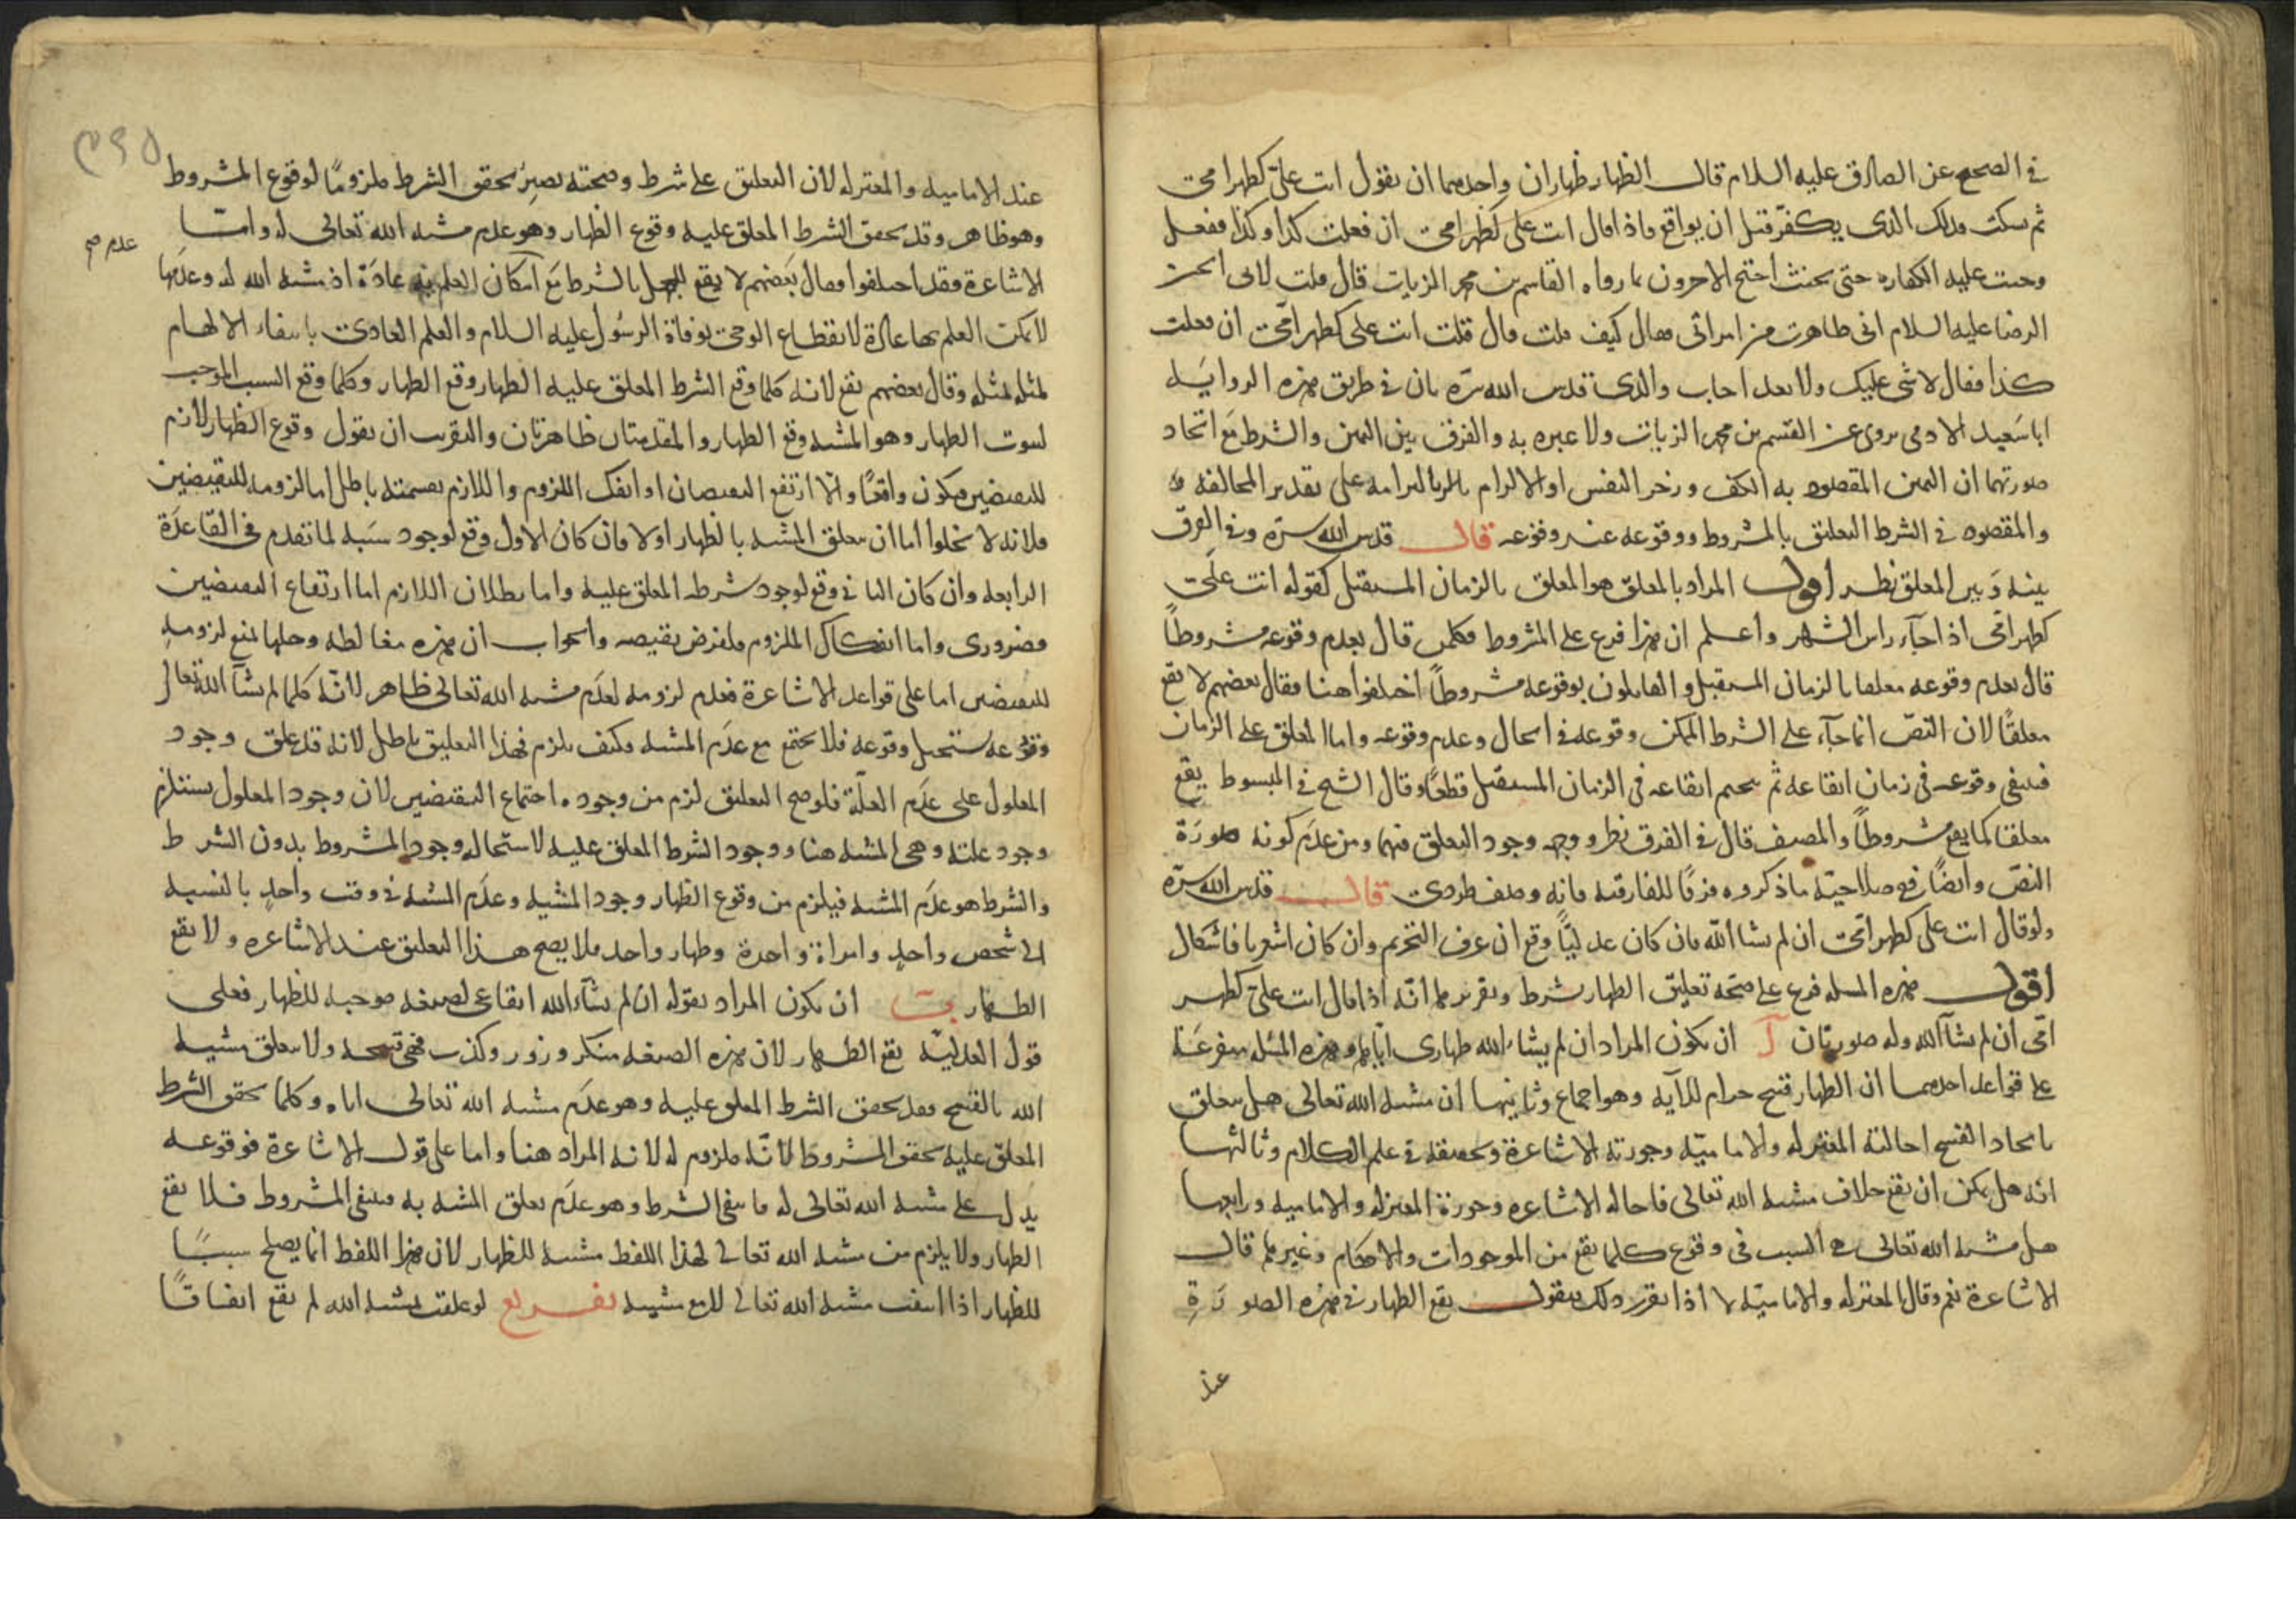 في الصحيح عن الصادق عليه السلام قال الظهار ظهاران واحدهما ان يقول انت عليّ كظهر امي
ثم سكت فذلك الذي يكفّر قبل ان يواقع فاذا قال انت علي كظهر امي ان فعلت كذا وكذا ففعل
وجبت عليه الكفارة حتى يحنث احتج الاخرون بما رواه القاسم بن محمد الزيات قال قلت لابي الحسن
الرضا عليه السلام اني ظاهرت من امراتي فقال كيف قلت قال قلت انت علي كظهر امي ان فعلت
كذا فقال لا شي عليك ولا تعد اجاب والدي قدس الله سرّه بان في طريق هذه الرواية
ابا سعيد الادمي يروي عن القسم بن محمد الزيات ولا عبرة به والفرق بين اليمين والشرط مع اتحاد
صورتهما ان اليمين المقصود به الكف وزجر النفس او الالزام بالتزامه على تقدير المخالفة
والمقصود في الشرط التعليق بالمشروط ووقوعه عند وقوعه قال قدس الله سرّه وفي الفرق
بينه وبين المعلق نظر اقول المراد بالمعلق هو المعلق بالزمان المستقبل كقوله انت علي
كظهر امي اذا جآء راس الشهر واعلم ان هذا فرع على المشروط فكلمن قال بعدم وقوعه مشروطاً
قال بعدم وقوعه معلقا بالزمان المستقبل والقايلون بوقوعه مشروطاً اختلفوا هنا فقال بعضهم لا يقع
معلقًا لان النصّ انما جآء على الشرط الممكن وقوعه في الحال وعدم وقوعه واما المعلق على الزمان
فينفي وقوعه في زمان ايقاعه ثم يحتم ايقاعه في الزمان المستقبل قطعًا وقال الشيخ في المبسوط يقع
معلقا كما يقع مشروطاً والمصنف قال في الفرق نظر ووجهه وجود التعلق فيهما ومن عدم كونه صورة
النصّ وايضًا في صلاحيّة ما ذكروه فرقًا للفارقية فانه وصف طردي قال قدس الله سرّه
ولو قال انت علي كظهر امي ان لم يشا الله فان كان عدليًّا وقع ان عرف التحريم وان كان اشعريا فاشكال
اقول هذه المسئلة فرع على صحّة تعليق الظهار بشرط وتقريرها انّه اذا قال انت عليّ كظهر
امّي ان لم يشآ الله وله صورتان آ ان يكون المراد ان لم يشاء الله ظهاري اياها وهذه المسئلة متفرعة
على قواعد احدهما ان الظهار قبيح حرام للآية وهو اجماع وثانيها ان مشية الله تعالى هل تتعلق
باتحاد القبيح احالته المعتزلة والامامية وجوزته الاشاعرة وتحقيقه في علم الكلام وثالثها
انه هل يمكن ان يقع خلاف مشية الله تعالى فاحاله الاشاعرة وجوزه المعتزلة والامامية ورابعها
هل مشية الله تعالى هي السبب في وقوع كلما يقع من الموجودات والاحكام وغيرها قال
الاشاعرة نعم وقال المعتزلة والامامية لا اذا تقرر ذلك فنقول يقع الظهار في هذه الصورة
عند
عند الامامية والمعتزلة لان التعليق على شرط وصحته يصيّر تحقق الشرط ملزومًا لوقوع المشروط
وهو ظاهر وقد تحقق الشرط المعلق عليه وقوع الظهار وهو عدم مشية الله تعالى له واما
عدم صح
الاشاعرة فقد اختلفوا فقال بعضهم لا يقع للجهل بالشرط مع امكان العلم به عادة اذ مشية الله له وعدمها
لا يمكن العلم بها عادة لانقطاع الوحي بوفاة الرسول عليه السلام والعلم العادي بانتفاء الالهام
لمثله لمثله وقال بعضهم يقع لانه كلما وقع الشرط المعلق عليه الظهار وقع الظهار وكلما وقع السبب الموجب
لثبوت الظهار وهو المشية وقع الظهار والمقدمتان ظاهرتان والتقريب ان يقول وقوع الظهار لازم
للنقيضين فيكون واقعًا والا ارتفع النقيضان او انفك اللزوم واللازم بقسمته باطل اما لزومه للنقيضين
فلانه لا يخلوا اما ان تتعلق المشية بالظهار اولا فان كان الاول وقع لوجود سببه لما تقدم في القاعدة
الرابعة وان كان الثاني وقع لوجود شرطه المعلق عليه واما بطلان اللازم اما ارتفاع النقيضين
فضروري واما انفكاك الملزوم فلفرض نقيضه والجواب ان هذه مغالطة وحلها بمنع لزومه
للنقيضين اما على قواعد الاشاعرة فعدم لزومه لعدم مشية الله تعالى ظاهر لانّه كلما لم يشآ الله تعالى
وقوعه يستحيل وقوعه فلا يجتمع مع عدم المشية فكيف يلزم فهذا التعليق باطل لانه قد علق وجود
المعلول على عدم العلّة فلو صح التعليق لزم من وجوده اجتماع النقيضين لان وجود المعلول يستلزم
وجود علته وهي المشية هنا ووجود الشرط المعلق عليه لاستحالة وجود المشروط بدون الشرط
والشرط هو عدم المشية فيلزم من وقوع الظهار وجود المشية وعدم المشية في وقت واحد بالنسبة
الى شخص واحد وامراة واحدة وظهار واحد فلا يصح هذا التعليق عند الاشاعرة ولا يقع
الظهار ب ان يكون المراد بقوله ان لم يشآء الله ايقاعي لصيغة موجبة للظهار فعلى
قول العدليّة يقع الظهار لان هذه الصيغة منكر وزور وكذب فهي قبيحة ولا تتعلق مشية
الله بالقبيح فقد تحقق الشرط المعلق عليه وهو عدم مشية الله تعالى اياه وكلما تحقق الشرط
المعلق عليه تحقق المشروط لانّه ملزوم له لانه المراد هنا واما على قول الاشاعرة فوقوعه
يدل على مشية الله تعالى له فانتفى الشرط وهو عدم تعلق المشية به فينتفي المشروط فلا يقع
الظهار ولا يلزم من مشية الله تعالى لهذا اللفظ مشية للظهار لان هذا اللفظ انما يصلح سببًا
للظهار اذا انتفت مشية الله تعالى تفريع لو علقت بمشية الله لم يقع اتفاقًا